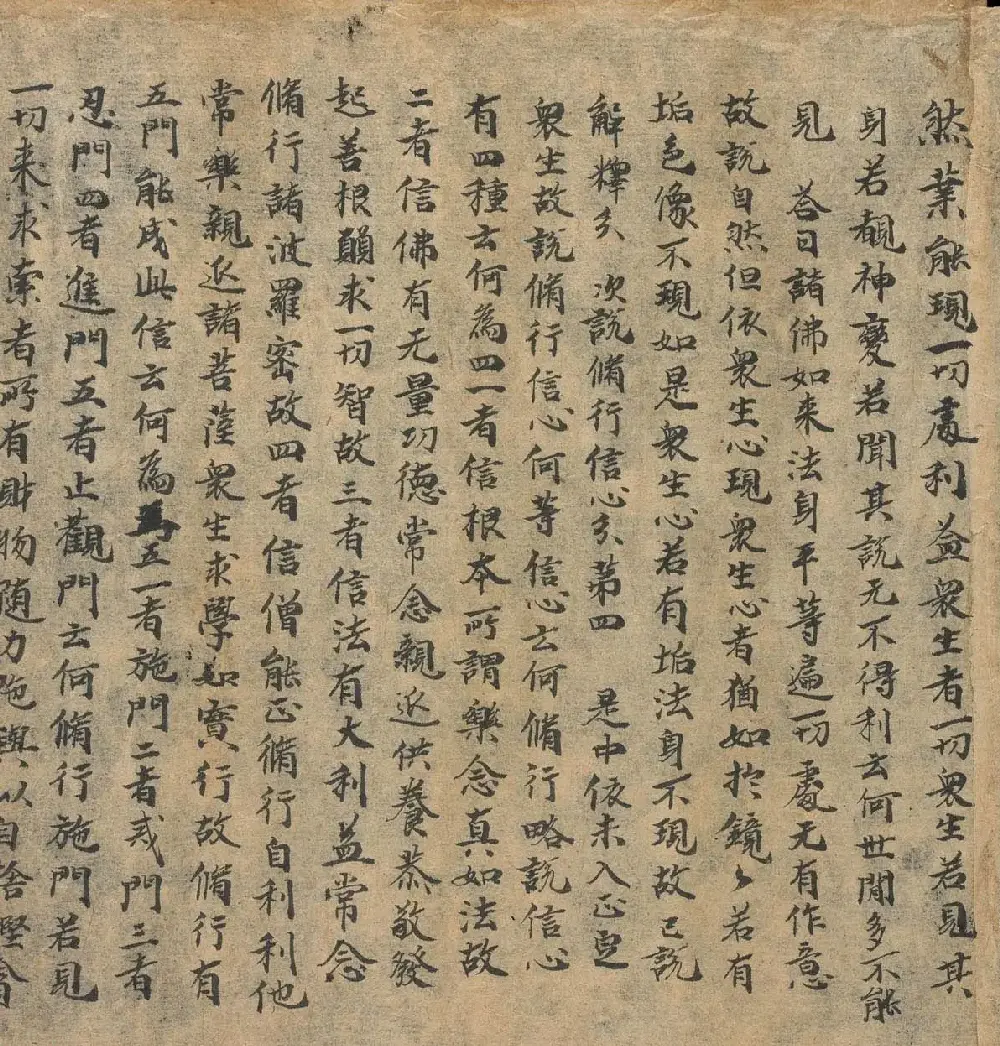 然業能現一切處利益衆生者一切衆生若見其
身若覩神變若聞其說无不得利云何世間多不能
見　荅曰諸佛如来法身平等遍一切處无有作意
故說自然但依衆生心現衆生心者猶如於鏡〻若有
垢色像不現如是衆生心若有垢法身不現故已說
解釋分　次說脩行信心分苐四　是中依未入正定
衆生故說脩行信心何等信心云何脩行略說信心
有四種云何為四一者信根本所謂樂念真如法故
二者信佛有无量功德常念親近供養恭敬發
起善根願求一切智故三者信法有大利益常念
脩行諸波羅密故四者信僧能正脩行自利利他
常樂親近諸菩薩衆生求學如實行故脩行有
五門能成此信云何為五一者施門二者戒門三者
忍門四者進門五者止觀門云何脩行施門若見
一切来求索者所有財物随力施與以自捨慳貪